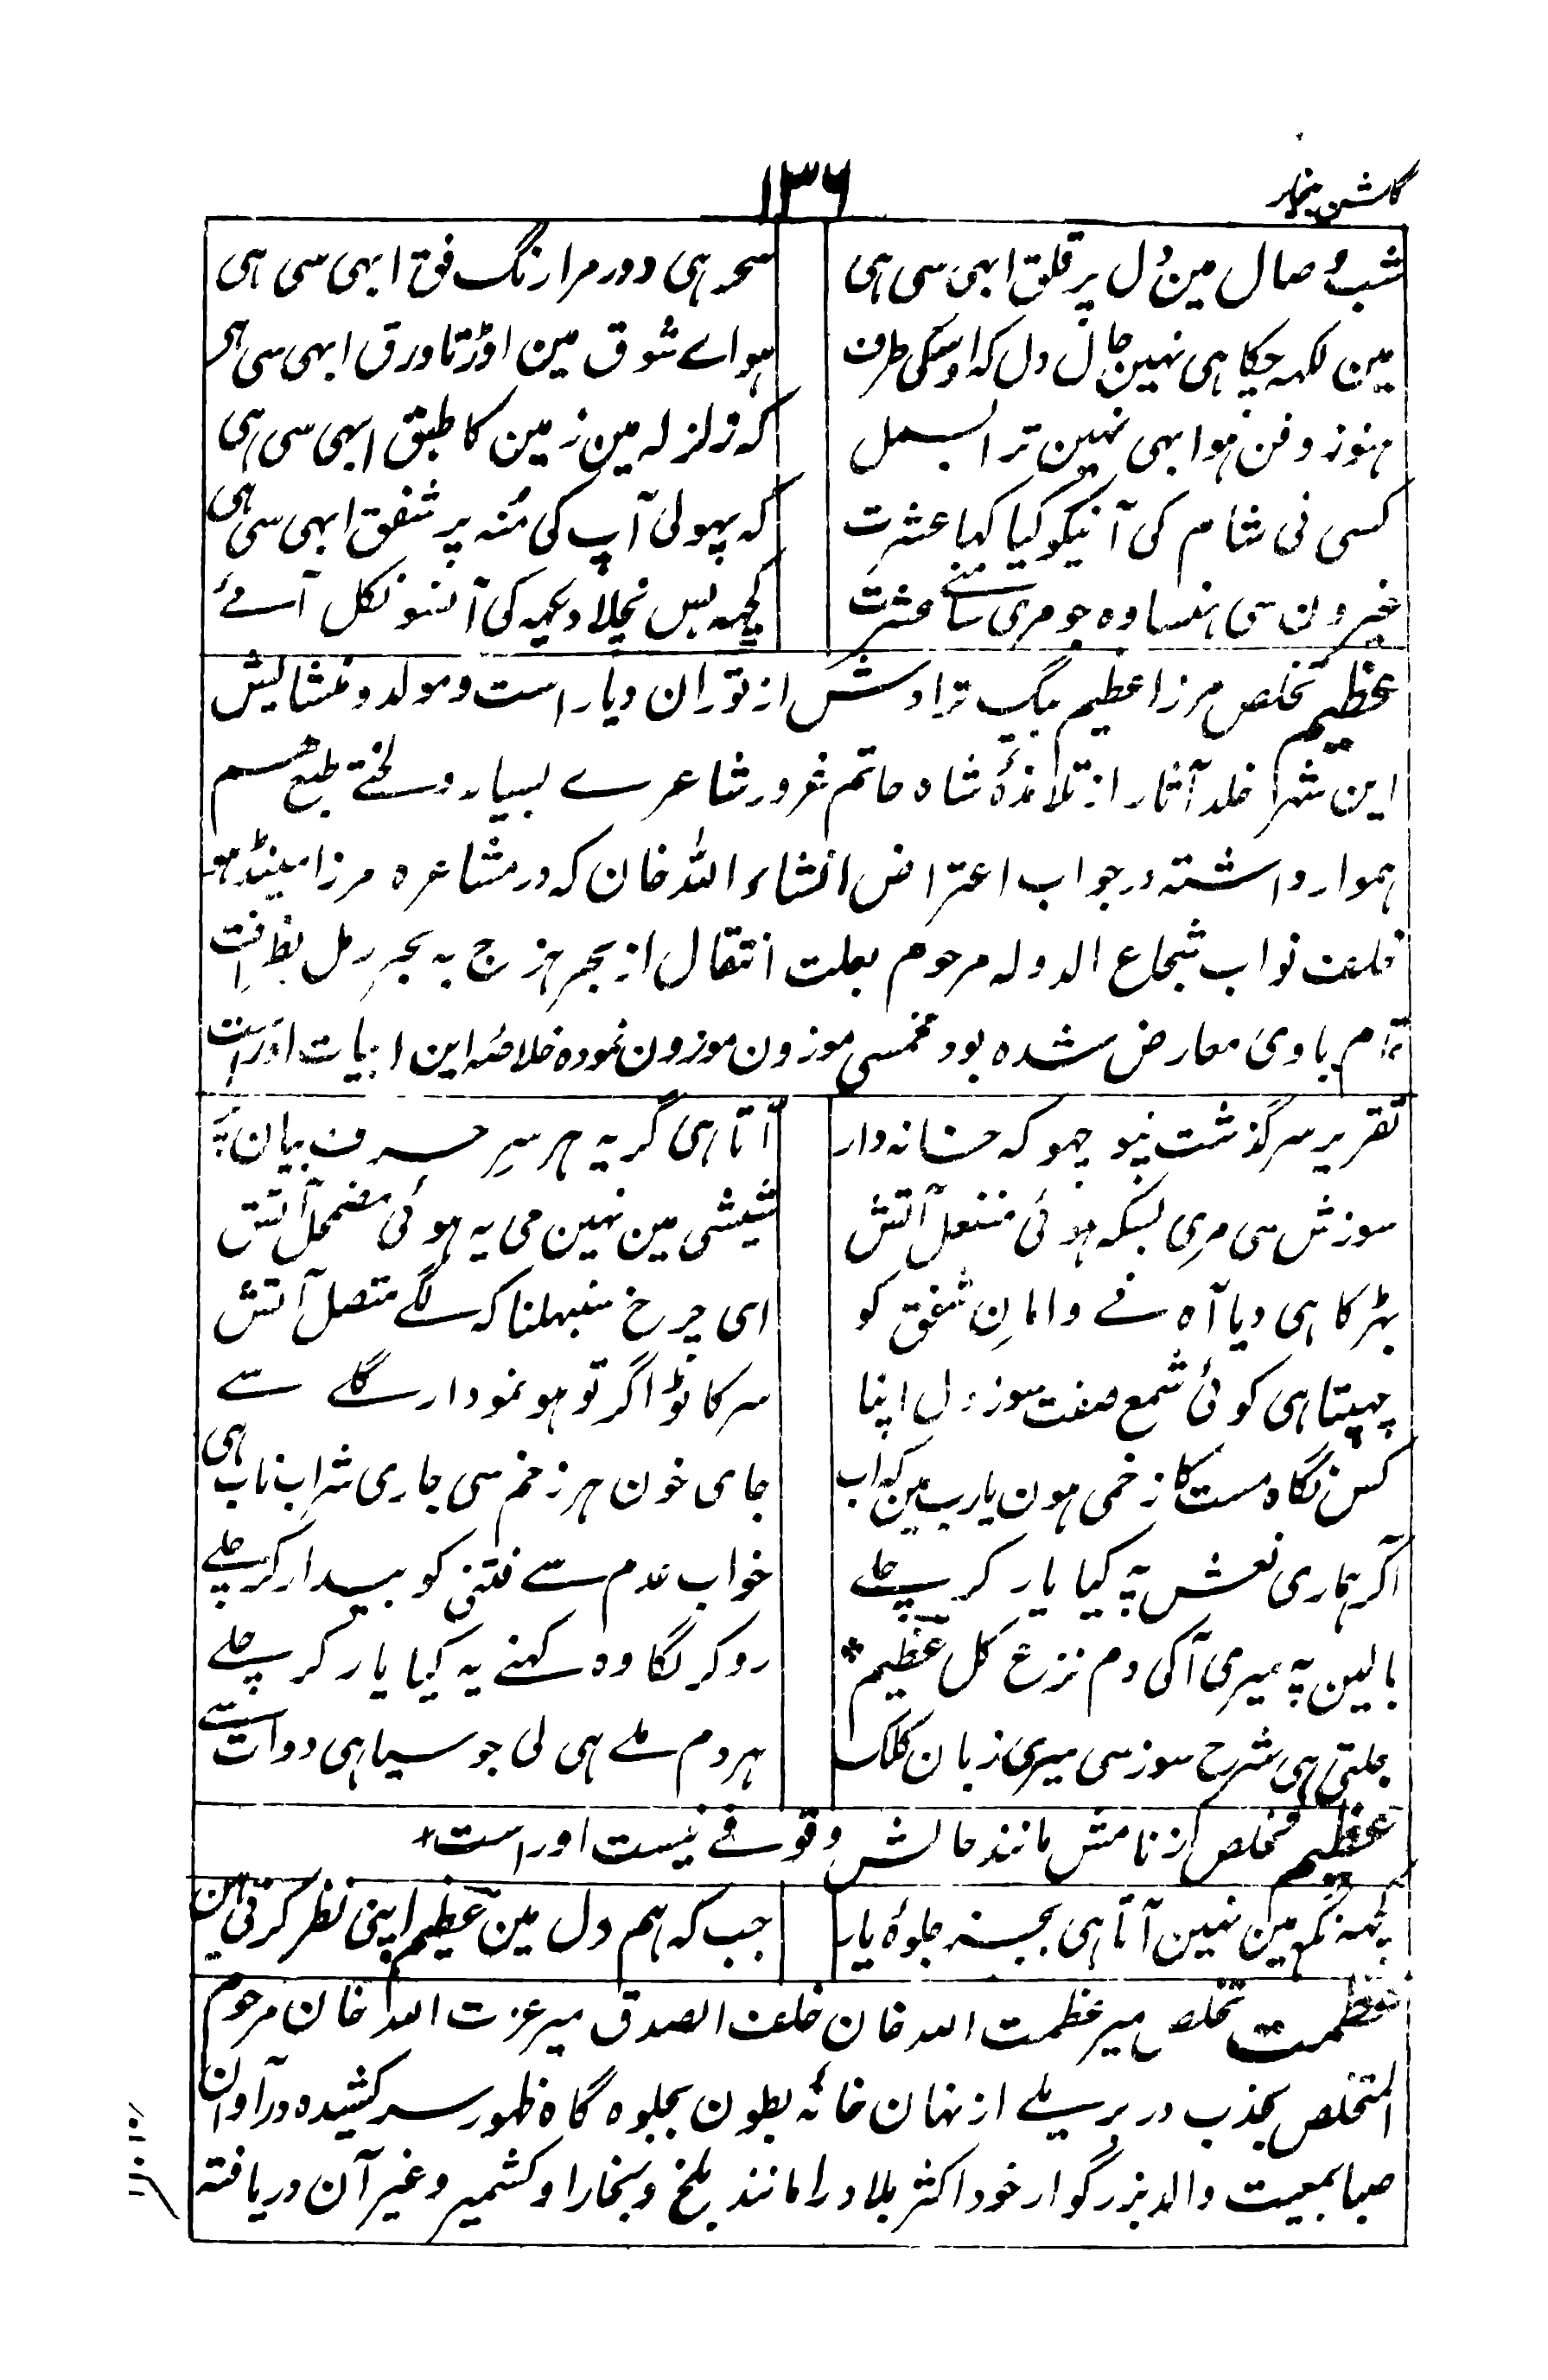 گلشن بیخار
۱۳۶
شب وصال مین دل پر قلق ابہی سی ہی سحر ہی دور مرا رنگ فق ابہی سی ہی
مین لکہہ چکا ہی نہین حال دل کہ اوسکی طرف ہواے شوق مین اوڑتا ورق ابہی سی ہی
ہنوز دفن ہوا بہی نہین ترا بسمل کہ زلزلہ مین زمین کا طبق ابہی سی ہی
کسی نی شام کی آنیکو کیا کہا عشرت کہ پہولی آپ کی منہ پر شفق ابہی سی ہی
غیرون سی ہنسا وہ جو مری سامنے عشرت کچہہ بس نچلا دیکہہ کی آنسو نکل آئے
عظیم تخلص مرزا عظیم بیگ نژادش از توران دیار است و مولد و منشایش
این شہر خلد آثار از تلامذۂ شاہ حاتم غرور شاعرے بسیار و لختے طبع ہم
ہموار داشتہ در جواب اعتراض انشاء اللہ خان کہ در مشاعرہ مرزا مینڈہو
خلف نواب شجاع الدولہ مرحوم بعلت انتقال از بحر ہزج بہ بحرِ رمل بظرافت
تمام باوی معارض شدہ بود مخمسی موزون موزون نمودہ خلاصہ این ابیات اوراست
تقریر سرگذشت نپوچہو کہ خانہ دار آتا ہی گریہ ہر سرِ حرف بیان پہ
سوزش سی مری بسکہ ہوئی منفعل آتش شیشی مین نہین می یہ ہوئی مضمحل آتش
بہڑکا ہی دیا آہ نے دامانِ شفق کو ای چرخ سنبہلنا کہ لگے متصل آتش
چہپتا ہی کوئی شمع صفت سوز دل اپنا سر کاٹو اگر تو ہو نمودار گلے سے
کس نگاہ مست کا زخمی ہون یارب مین کہ اب جای خون ہر زخم سی جاری شرابِ ناب ہی
آکر ہماری نعش پہ کیا یار کر چلے خواب عدم سے فتنی کو بیدار کر چلے
بالین پہ میری آکی دم نزع کل عظیم * روکر لگا وہ کہنے یہ کیا یار کر چلے
جلتی ہی شرح سوز سی میری زبان کلک ہردم ملے ہی لی جو سیاہی دوات سے
عظیم تخلص کز نامش مانند حالش وقوفے نیست اوراست +
کچہہ نگہ مین نہین آتا ہی بجز جلوۂ یار جب کہ ہم دل مین عظیم اپنی نظر کرتی ہین
عظمت تخلص میر عظمت اللہ خان خلف الصدق میر عزت اللہ خان مرحوم
المتخلص بجذب در بریلے از نہان خانۂ بطون بجلوہ گاہ ظہور سر کشیدہ در آوان
صبا بمعیت والد بزرگوار خود اکثر بلاد را مانند بلخ و بخارا و کشمیر و غیر آن دریافتہ